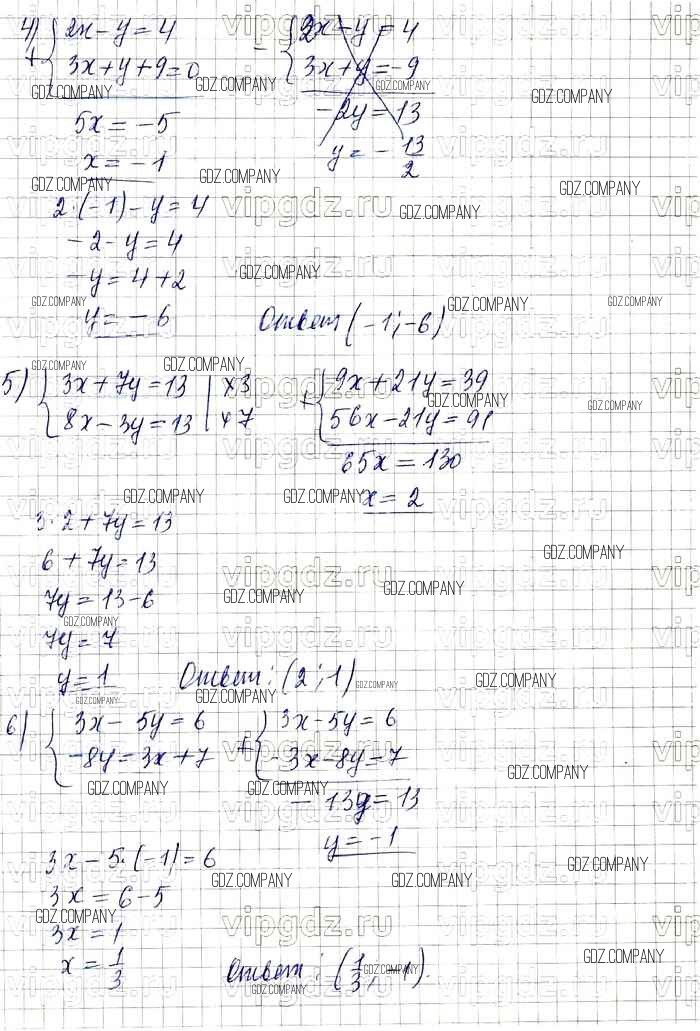 4) { 2x - y = 4
+ { 3x + y + 9 = 0
5x = -5
x = -1
- { 2x - y = 4
{ 3x + y = -9
-2y = 13
y = - 13/2
2·(-1) - y = 4
-2 - y = 4
-y = 4 + 2
y = -6
Ответ (-1; -6)
5) { 3x + 7y = 13 | ×3
{ 8x - 3y = 13 | ×7
+ { 9x + 21y = 39
{ 56x - 21y = 91
65x = 130
x = 2
3·2 + 7y = 13
6 + 7y = 13
7y = 13 - 6
7y = 7
y = 1
Ответ: (2; 1)
6) { 3x - 5y = 6
{ -8y = 3x + 7
+ { 3x - 5y = 6
{ -3x - 8y = 7
-13y = 13
y = -1
3x - 5·(-1) = 6
3x = 6 - 5
3x = 1
x = 1/3
Ответ: (1/3; -1).
GDZ.COMPANY
vipgdz.ru